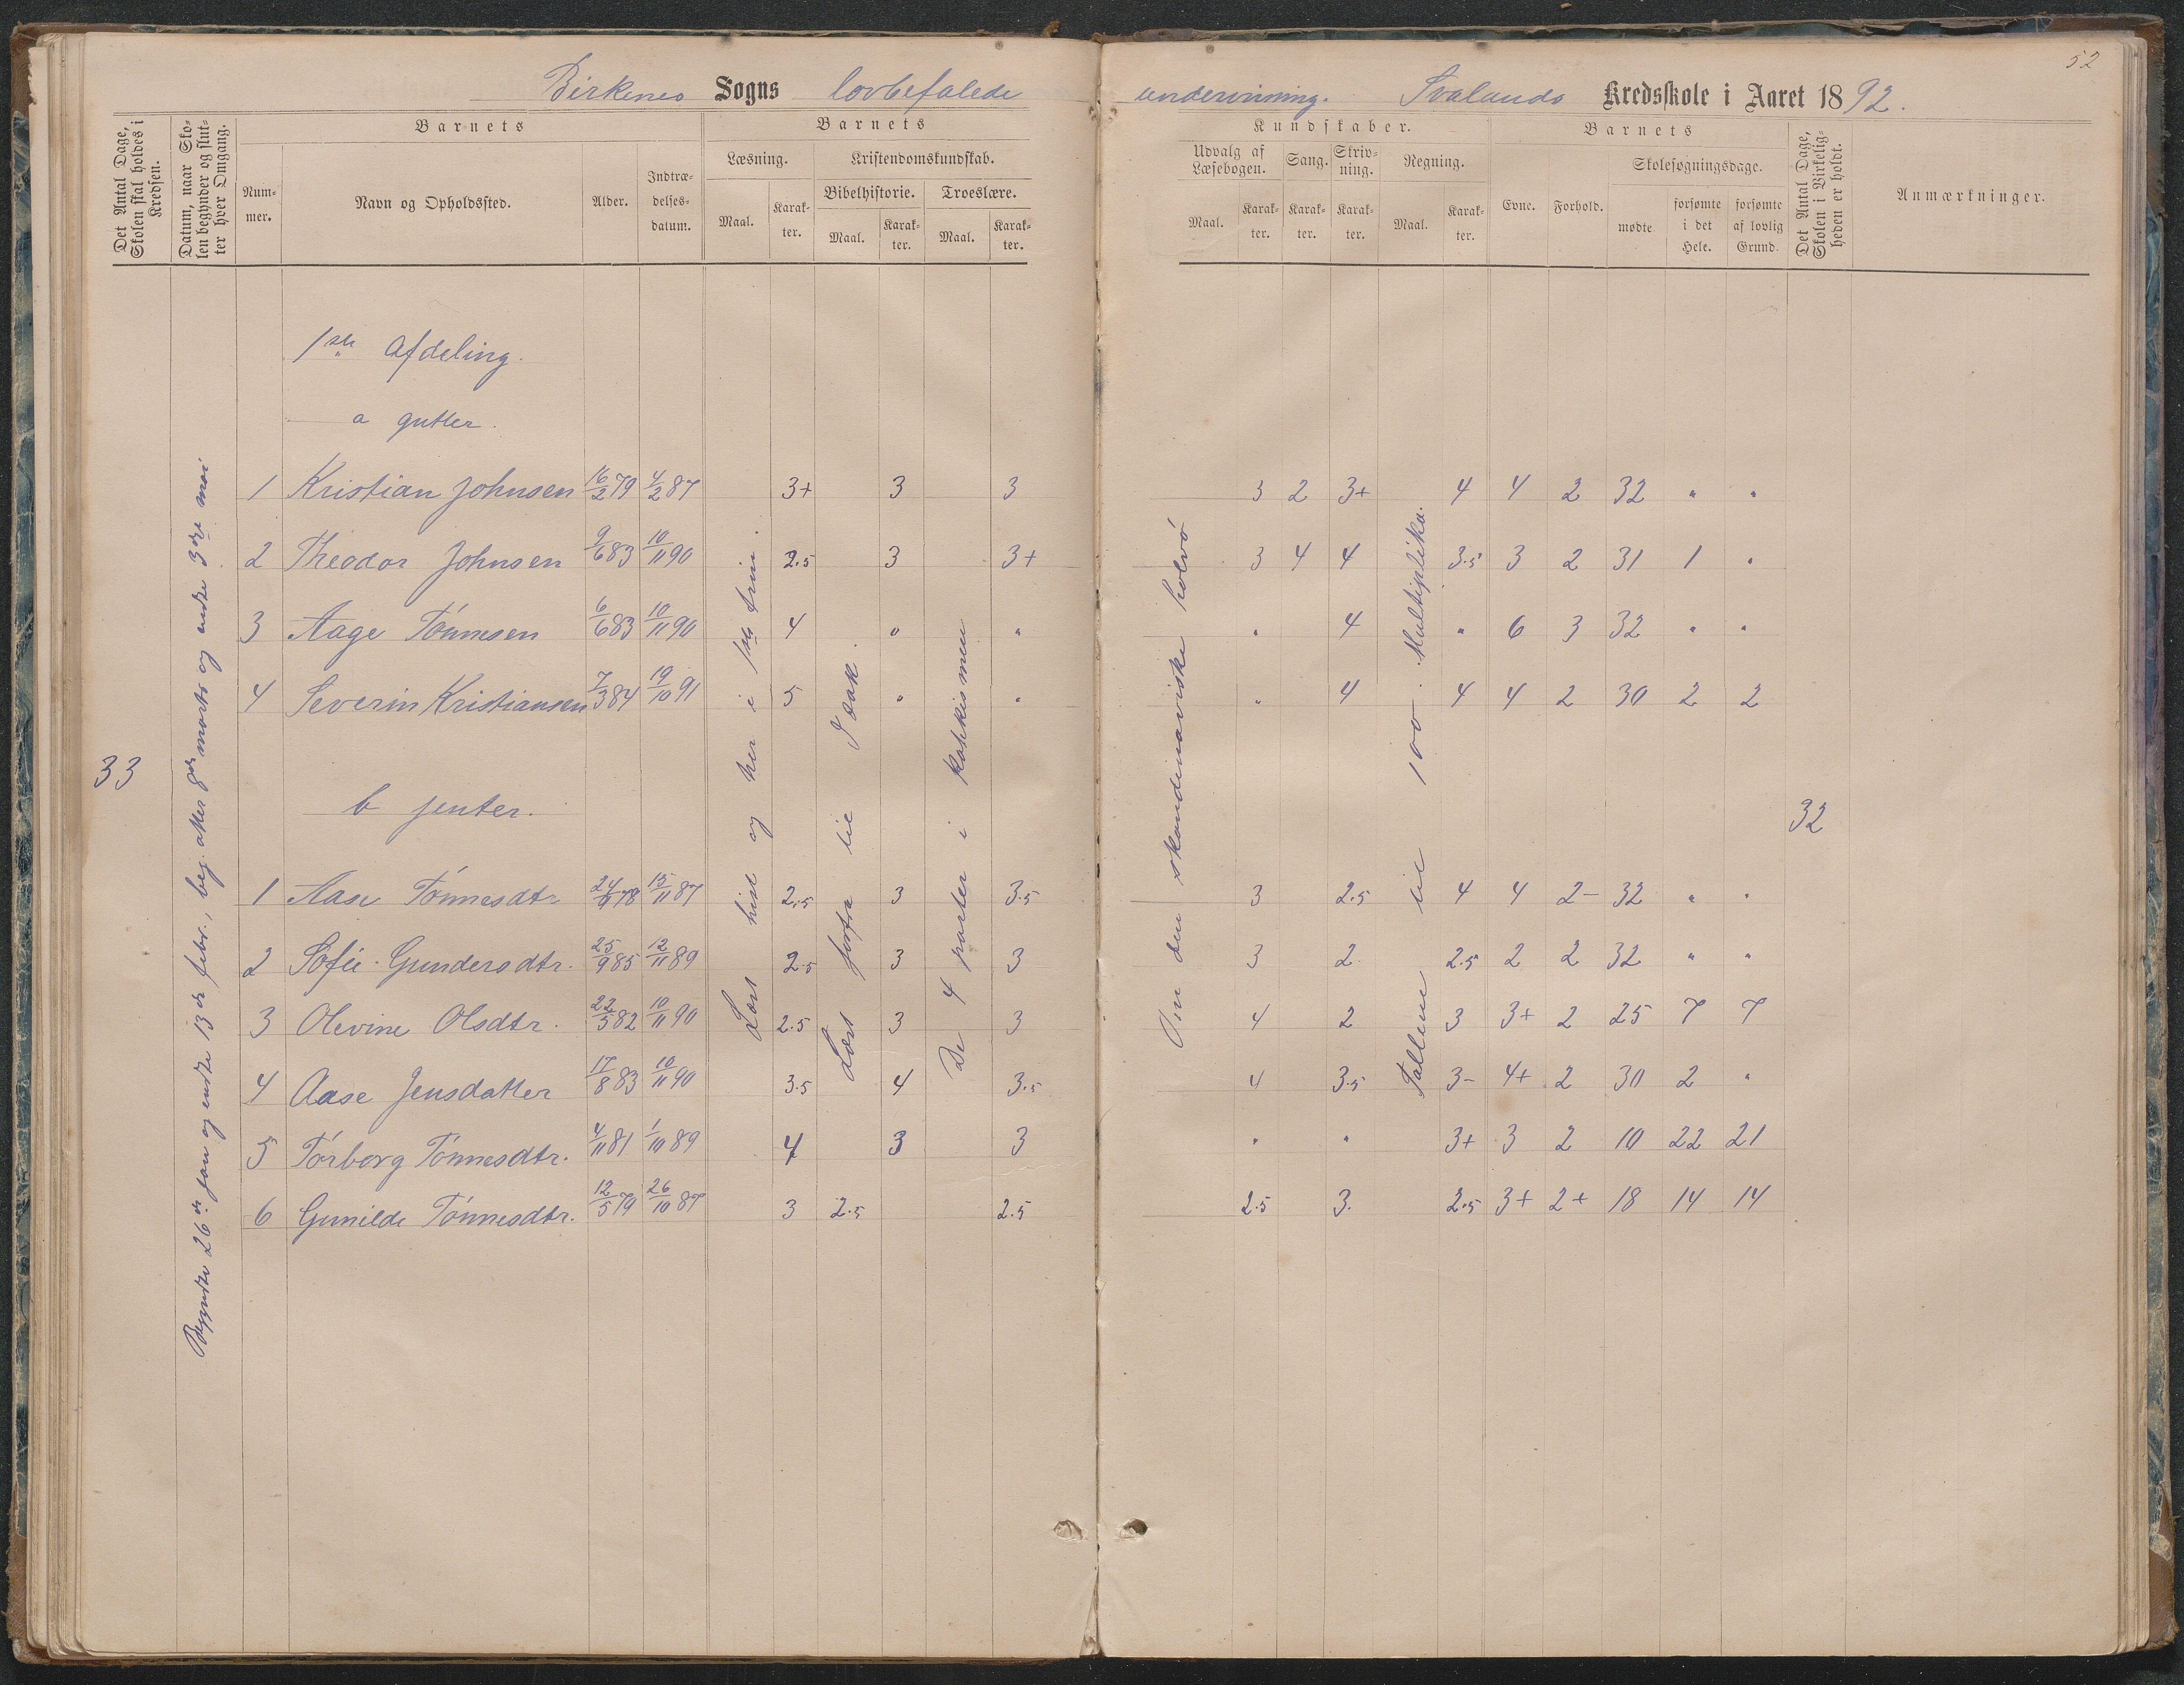 52
Birkenes Sogns lovbefalede undervisning. Svalands Kredsskole i Aaret 1892.
Det Antal Dage, Skolen skal holdes i Kredsen.
Datum, naar Skolen begynder og slutter hver Omgang.
Barnets
Nummer.
Navn og Opholdssted.
Alder.
Indtrædelsesdatum.
Barnets
Læsning.
Maal.
Karakter.
Kristendomskundskab.
Bibelhistorie.
Maal.
Karakter.
Troeslære.
Maal.
Karakter.
Kundskaber.
Udvalg af Læsebogen.
Maal.
Karakter.
Sang.
Karakter.
Skrivning.
Karakter.
Regning.
Maal.
Karakter.
Barnets
Evne.
Forhold.
Skolesøgningsdage.
mødte
forsømte i det Hele.
forsømte af lovlig Grund.
Det Antal Dage, Skolen i Virkeligheden er holdt.
Anmærkninger.
1ste Afdeling.
a gutter.
1 Kristian Johnsen 16/2 79 4/2 87 3+ 3 3 3 2 3+ 4 4 2 32 " "
2 Theodor Johnsen 9/6 83 10/11 90 2.5 3 3+ 3 4 4 3.5 3 2 31 1 "
3 Aage Tønnesen 6/6 83 10/11 90 4 " " " 4 " 6 3 32 " "
4 Severin Kristiansen 7/3 84 19/10 91 5 " " " 4 4 4 2 30 2 2
33
b jenter.
32
1 Aase Tønnesdtr 78 15/11 87 2.5 3 3.5 3 2.5 4 4 2- 32 " "
2 Sofie Gundersdtr. 25/9 85 12/11 89 2.5 3 3 3 2 2.5 2 2 32 " "
3 Olevine Olsdtr. 22/5 82 10/11 90 2.5 3 3 4 2 3 3+ 2 25 7 7
4 Aase Jensdatter 17/8 83 10/11 90 3.5 4 3.5 4 3.5 3- 4+ 2 30 2 "
5 Torborg Tønnesdtr. 4/11 81 1/10 89 4 3 3 " " 3+ 3 2 10 22 21
6 Gunilde Tønnesdtr. 12/5 79 26/10 87 3 2.5 2.5 2.5 3. 2.5 3+ 2+ 18 14 14
Begyndte 26de jan og endte 13de febr., beg. atter 8de marts og endte 3dje mai
Læst hist og her i 1ste trin.
Læst forfra til Isak.
De 4 parter i katkismen
Om den skandinaviske halvø
Tallene til 100. Multiplika.